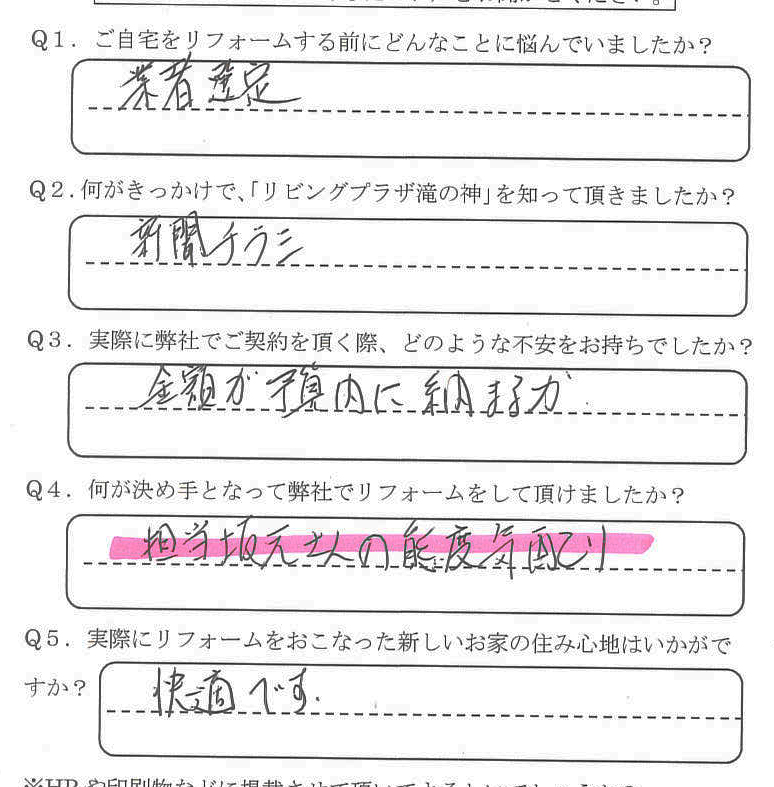 Q1．ご自宅をリフォームする前にどんなことに悩んでいましたか？
業者選定
Q2．何がきっかけで、「リビングプラザ滝の神」を知って頂きましたか？
新聞チラシ
Q3．実際に弊社でご契約を頂く際、どのような不安をお持ちでしたか？
金額が予算内に納まるか
Q4．何が決め手となって弊社でリフォームをして頂けましたか？
担当坂元さんの態度気配り
Q5．実際にリフォームをおこなった新しいお家の住み心地はいかがで
すか？
快適です.